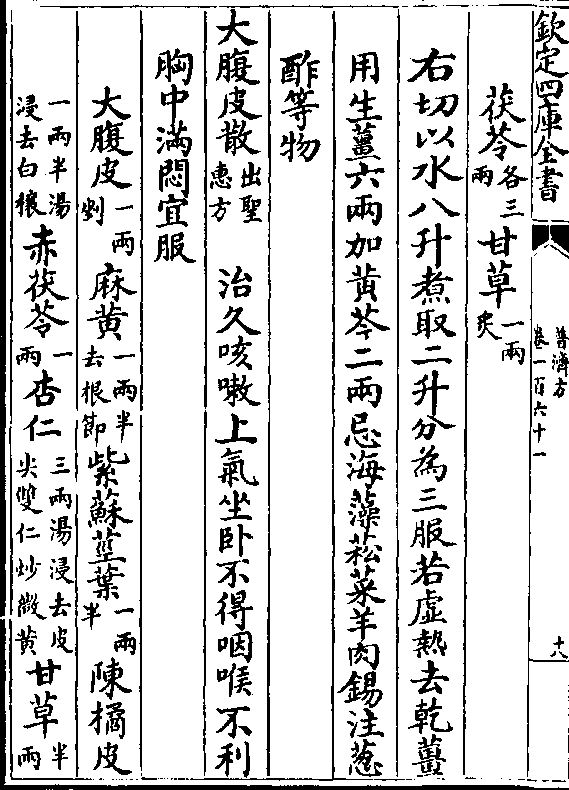 欽定四庫全書
普濟方
卷一百六十一
十八
茯苓各三兩甘草一兩炙
右切以水八升煮取二升分為三服若虛熱去乾薑
用生薑六兩加黄芩二兩忌海藻菘菜羊肉錫注葱
酢等物
大腹皮散出聖惠方 治久咳嗽上氣坐卧不得咽喉不利
胸中滿悶宜服
大腹皮一兩剉麻黄一兩半去根節紫蘇莖葉一兩半陳橘皮
一兩半湯浸去白穰赤茯苓一兩杏仁三兩湯浸去皮尖雙仁炒微黄甘草半兩